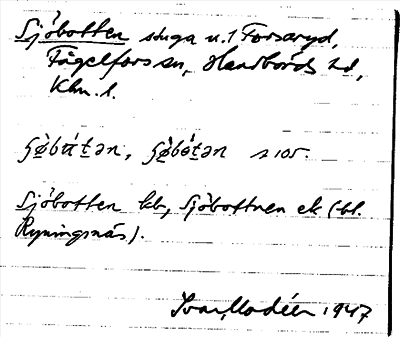 Sjöbotten stuga u. 1 Forsaryd,
Fågelfors sn, Handbörds hd,
Klm. l.
ʃø̀bɷ́tən, ʃø̀bótən s 105.
Sjöbotten kb, Sjöbottnen ek (bl.
Ryningsnäs).
Ivar Modéer 1947